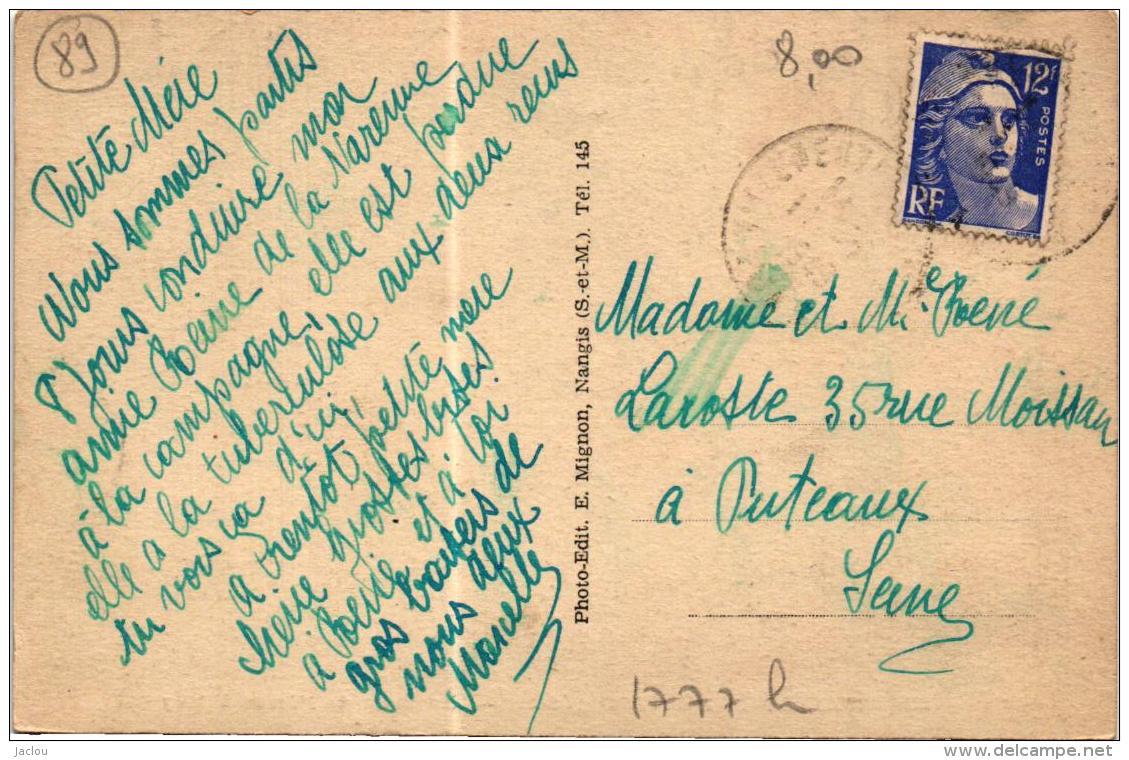 89
8,00
12F
POSTES
RF
Petite Mère
Nous sommes partis
8 jours conduire mon
amie Reine de la Varenne
à la campagne, elle est perdue
elle a la tuberculose aux deux reins
tu vois ça d'ici,
a bientot, petite mère
chérie grosses bises
à René et à toi
gros baisers de
nous deux
Marcelle
Photo-Edit. E. Mignon, Nangis (S.-et-M.). Tél. 145
Madame et Mr René
Lacoste 35 rue Moissan
à Puteaux
Seine
1777 h
Jaclou
http://www.delcampe.net